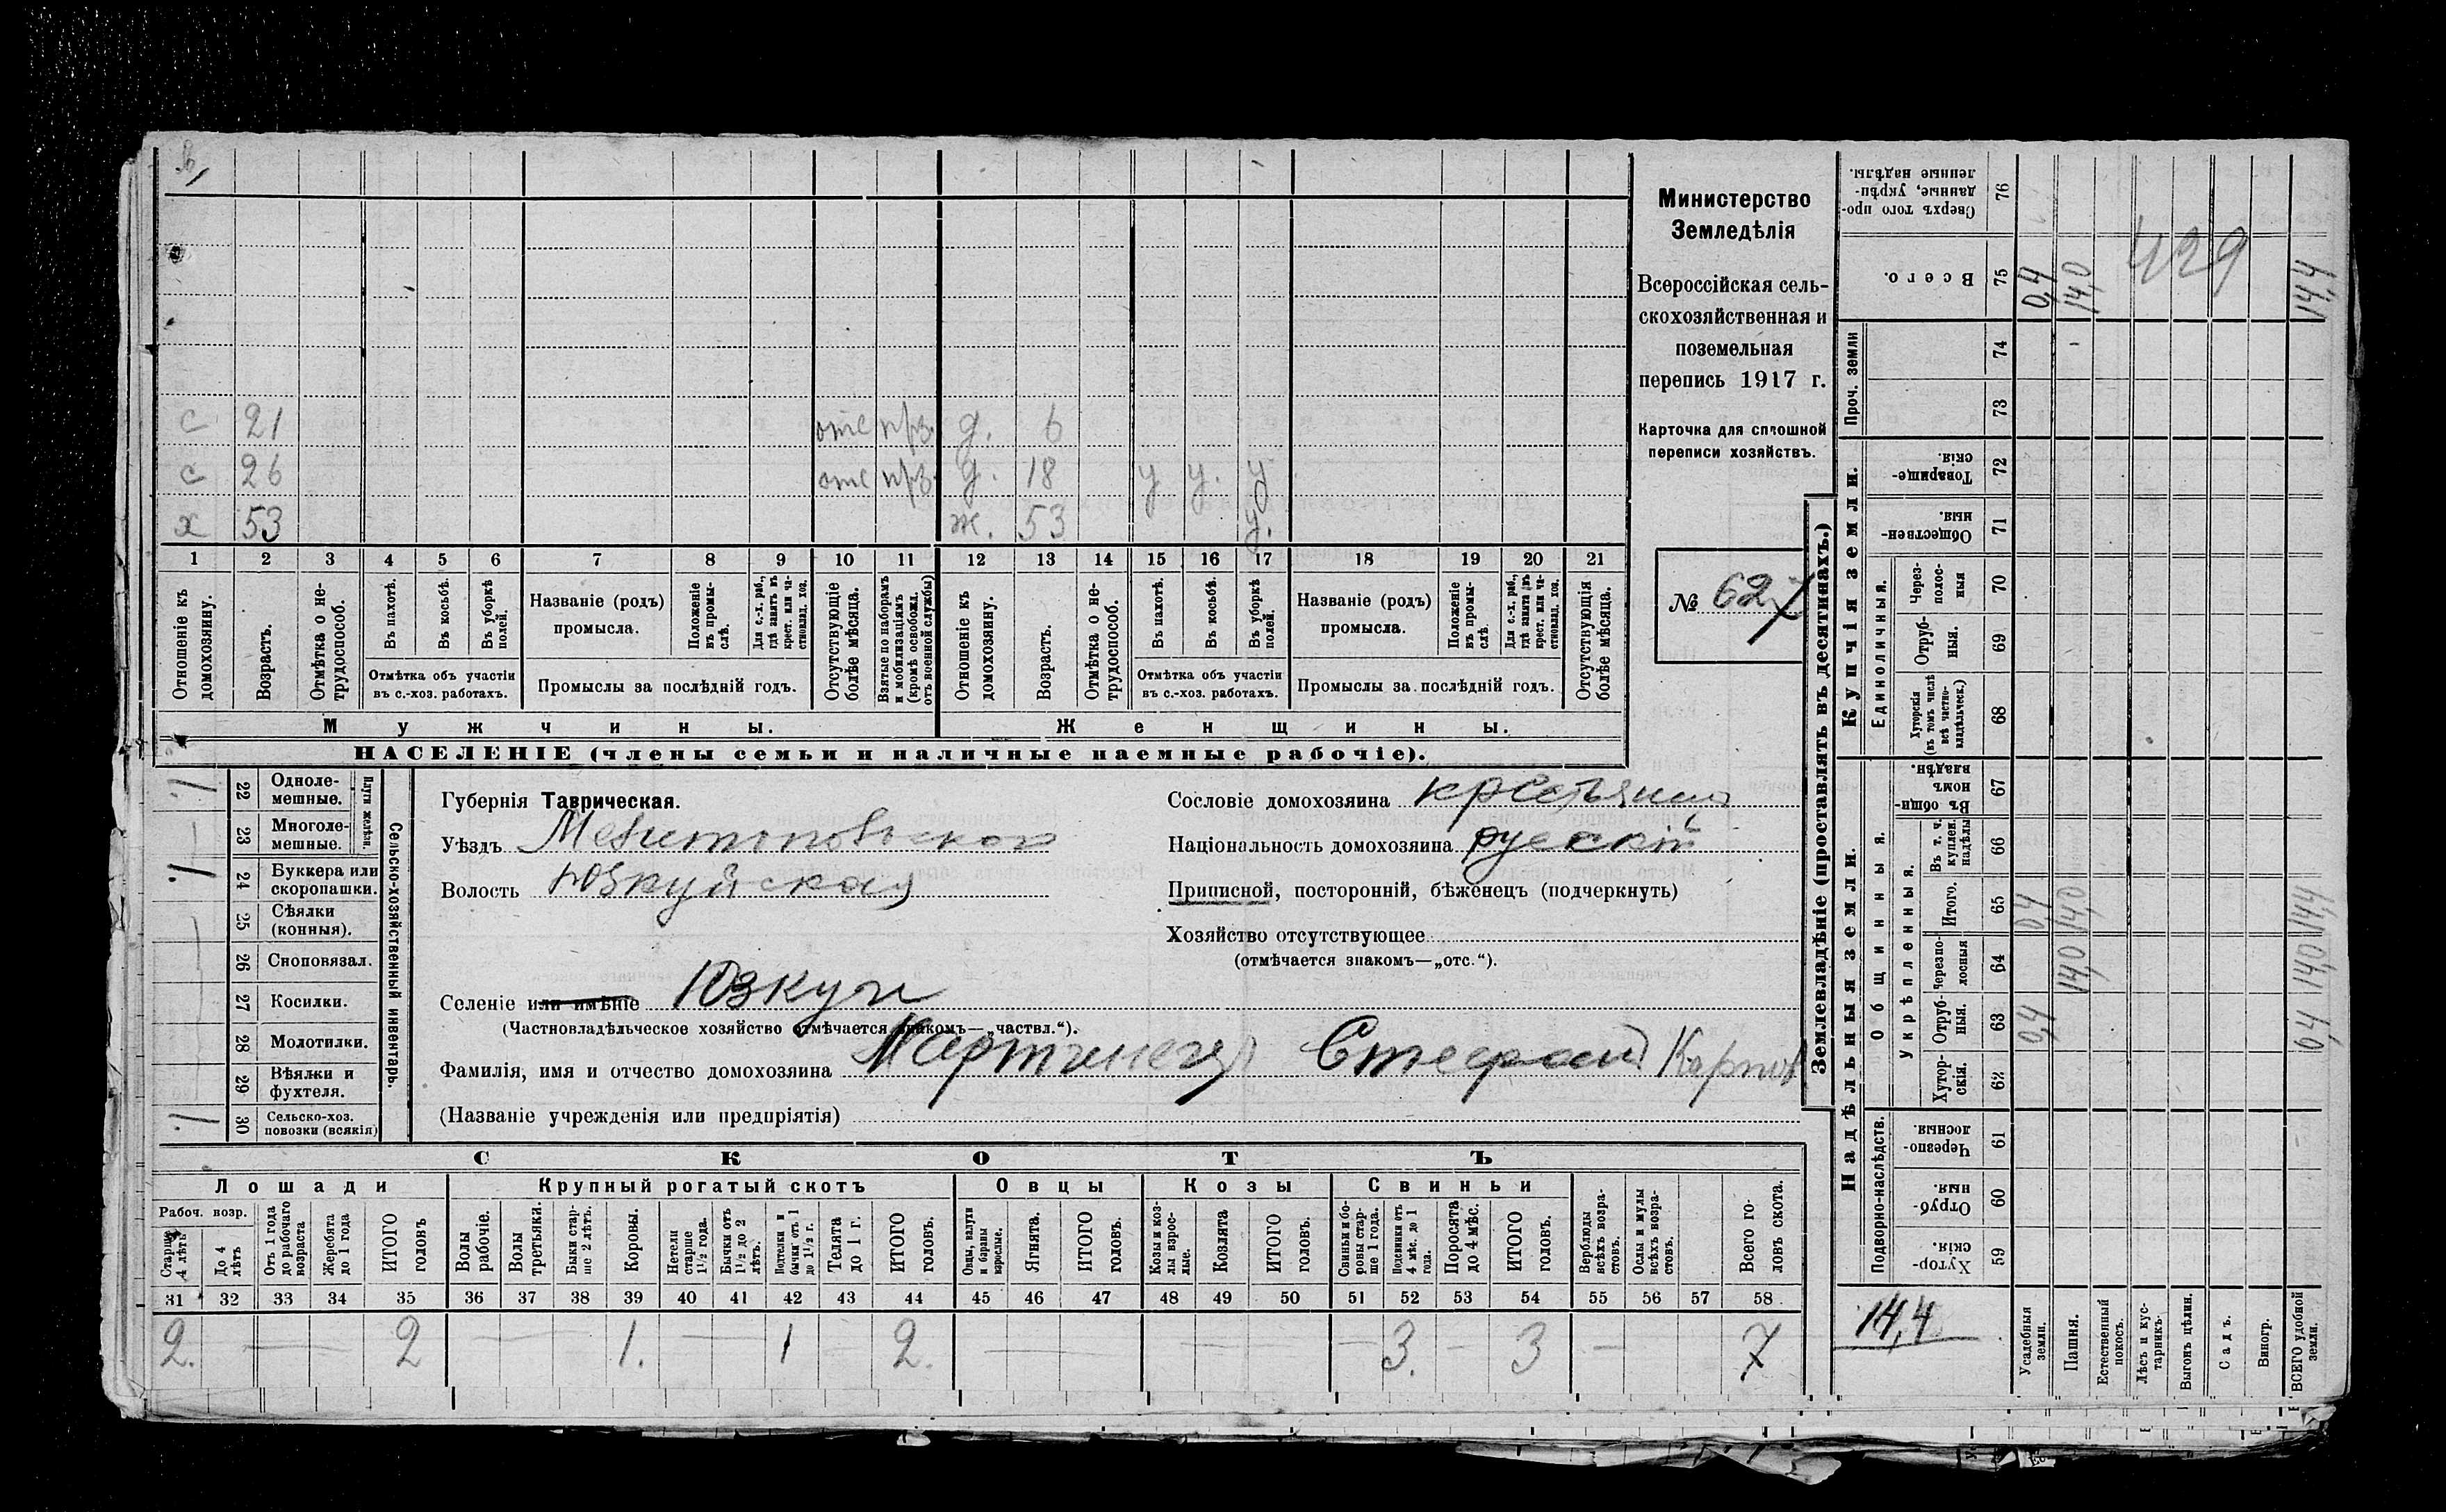 с 21 отс прз. д. 6
с 26 отс прз. д. 18 у у. у
х 53 ж. 53 у.
1 2 3 4 5 6 7 8 9 10 11 12 13 14 15 16 17 18 19 20 21
Отношеніе къ домохозяину.
Возрастъ.
Отмѣтка о не-трудоспособ.
Въ пахотѣ.
Въ косьбѣ.
Въ уборкѣ полей.
Отмѣтка объ участіи
въ с.-хоз. работахъ.
Названіе (родъ)
промысла.
Положеніе въ промы-слѣ.
Для с.-х. раб., гдѣ занятъ въ крест. или ча-стновлад. хоз.
Промыслы за послѣдній годъ.
Отсутствующіе болѣе мѣсяца.
Взятые по наборамъ и мобилизаціямъ (кромѣ освобожд. отъ военной службы)
Отношеніе къ домохозяину.
Возрастъ.
Отмѣтка о не-трудоспособ.
Въ пахотѣ.
Въ косьбѣ.
Въ уборкѣ полей.
Отмѣтка объ участіи
въ с.-хоз. работахъ.
Названіе (родъ)
промысла.
Положеніе въ промы-слѣ.
Для с.-х. раб., гдѣ занята въ крест. или ча-стновлад. хоз.
Промыслы за послѣдній годъ.
Отсутствующія болѣе мѣсяца.
Мужчины.
Женщины.
НАСЕЛЕНІЕ (члены семьи и наличные наемные рабочіе).
Министерство
Земледѣлія
Всероссійская сель-
скохозяйственная и
поземельная
перепись 1917 г.
Карточка для сплошной
переписи хозяйствъ.
№ 627
22 Одноле-мешные.
23 Многоле-мешные.
Плуги желѣзн.
24 Буккера или скоропашки.
25 Сѣялки (конныя).
26 Сноповязал.
27 Косилки.
28 Молотилки.
29 Вѣялки и фухтеля.
30 Сельско-хоз. повозки (всякія)
Сельско-хозяйственный инвентарь.
Губернія Таврическая.
Уѣздъ Мелитопольскій
Волость Юзкуйская
Селеніе или имѣніе Юзкуи
(Частновладѣльческое хозяйство отмѣчается знакомъ—„частвл.“).
Фамилія, имя и отчество домохозяина Стефан Карпов
(Названіе учрежденія или предпріятія)
Сословіе домохозяина крестьянин
Національность домохозяина русскій
Приписной, посторонній, бѣженецъ (подчеркнуть)
Хозяйство отсутствующее
(отмѣчается знакомъ—„отс.“).
СКОТЪ
Лошади Крупный рогатый скотъ Овцы Козы Свиньи
Рабоч. возр.
Старше 4 лѣтъ
До 4 лѣтъ
Отъ 1 года до рабочаго возраста
Жеребята до 1 года
ИТОГО головъ
Волы рабочіе.
Волы третьяки.
Быки стар-ше 2 лѣтъ.
Коровы.
Нетели старше 1½ года.
Бычки отъ 1½ до 2 лѣтъ.
Подтелки и бычки отъ 1 до 1½ г.
Телята до 1 г.
ИТОГО головъ.
Овцы, валухи и бараны взрослые.
Ягнята.
ИТОГО головъ.
Козы и коз-лы взрос-лые.
Козлята
ИТОГО головъ.
Свиньи и бо-ровы стар-ше 1 года.
Подсвинки отъ 4 мѣс. до 1 года.
Поросята до 4 мѣс.
ИТОГО головъ.
Верблюды всѣхъ возра-стовъ.
Ослы и мулы всѣхъ возра-стовъ.
Всего го-ловъ скота.
31 32 33 34 35 36 37 38 39 40 41 42 43 44 45 46 47 48 49 50 51 52 53 54 55 56 57 58
2. — 2 — 1. — 1 — 2. — — — 3. — 3 — 7
Землевладѣніе (проставлять въ десятинахъ.)
Купчія земли.
Проч. земли
Единоличныя.
Надѣльныя земли.
Общинныя.
Укрѣпленныя.
Подворно-наслѣдств.
Сверхъ того про-данные, укрѣп-ленные надѣлы. 76
Всего. 75 0,4 14,0 14,4
74
73
Товарище-скія. 72
Обществен-ныя. 71
Через-полос-ныя 70
Отруб-ныя. 69
Хуторскія (въ томъ числѣ всѣ частно-владѣльческ.) 68
Въ общин-номъ владѣн. 67
Въ т. ч. куплен. надѣлы 66
Итого. 65 0,4 14,0 14,4
Черезпо-лосныя 64 14,0 14,0
Отруб-ныя. 63 0,4 0,4
Хутор-скія. 62
Черезпо-лосныя 61
Отруб-ныя. 60
Хутор-скія. 59
429
14,4
Усадебныя земли.
Пашня.
Естественный покосъ.
Лѣсъ и кус-тарникъ.
Выгонъ цѣлин.
Садъ.
Виногр.
ВСЕГО удобной земли.